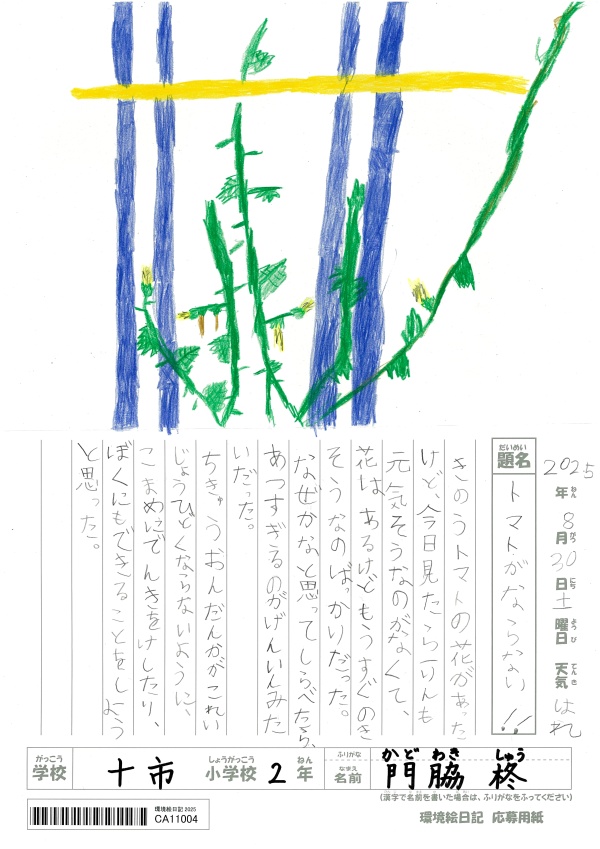 2025年8月30日土曜日 天気 はれ
ねん がつ にち ようび てんき
だいめい
題名 トマトがならない!!
きのうトマトの花があった
けど、今日見たら一りんも
元気そうなのがなくて、
花はあるけどもうすぐのき
そうなのばっかりだった。
なぜかな、と思ってしらべたら、
あつすぎるのがげんいんみた
いだった。
ちきゅうおんだんかがこれい
じょうひどくならないように、
こまめにでんきをけしたり、
ぼくにもできることをしよう
と思った。
がっこう しょうがっこう ねん ふりがな かど わき しゅう
学校 十市 小学校 2年 なまえ 名前 門脇 柊
(漢字で名前を書いた場合は、ふりがなをふってください)
環境絵日記 2025
CA11004
環境絵日記 応募用紙